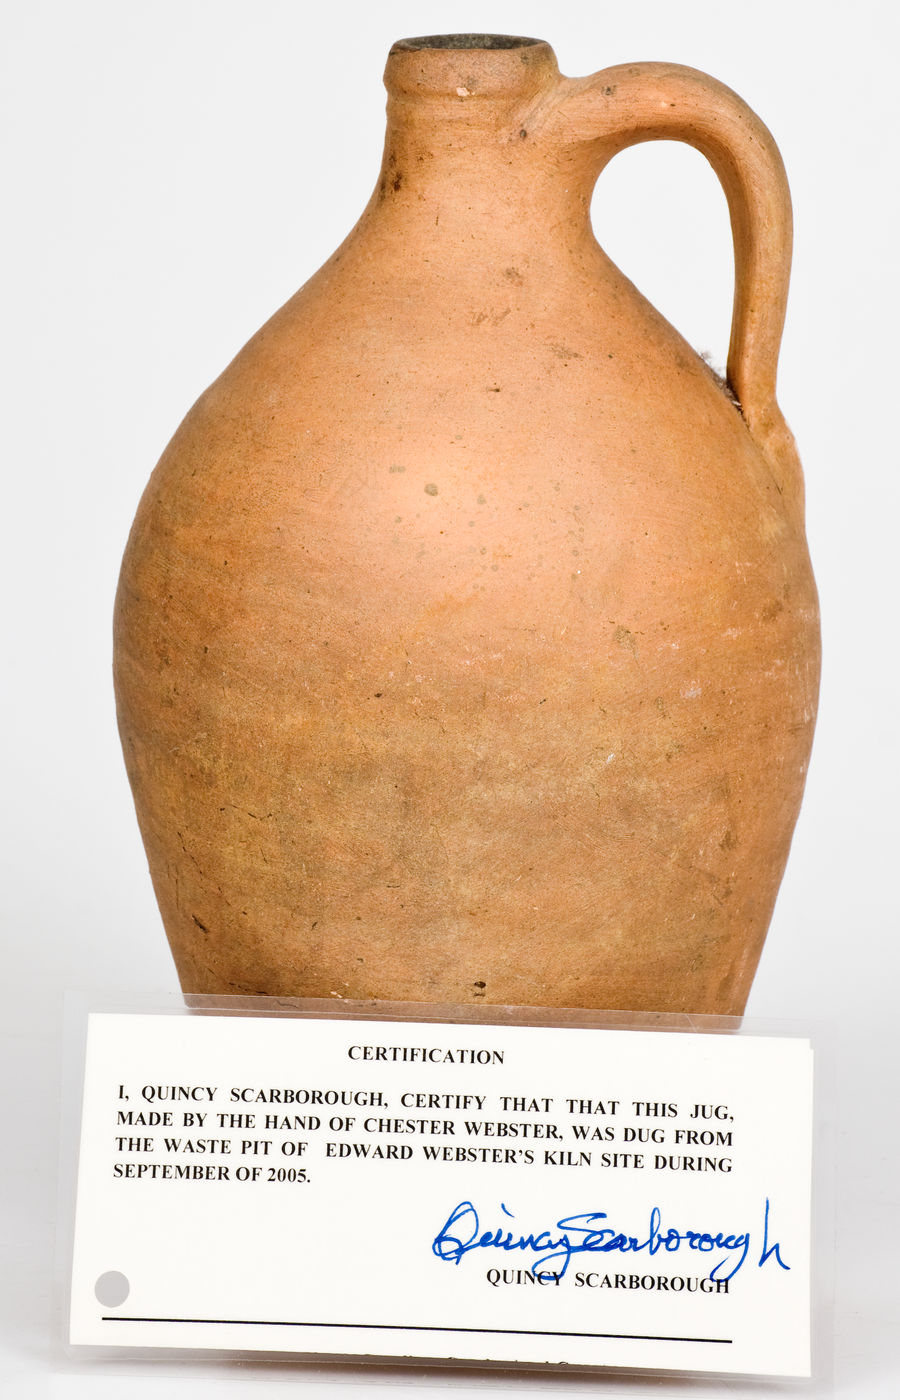 CERTIFICATION
I, QUINCY SCARBOROUGH, CERTIFY THAT THAT THIS JUG,
MADE BY THE HAND OF CHESTER WEBSTER, WAS DUG FROM
THE WASTE PIT OF EDWARD WEBSTER'S KILN SITE DURING
SEPTEMBER OF 2005.
Quincy Scarborough
QUINCY SCARBOROUGH